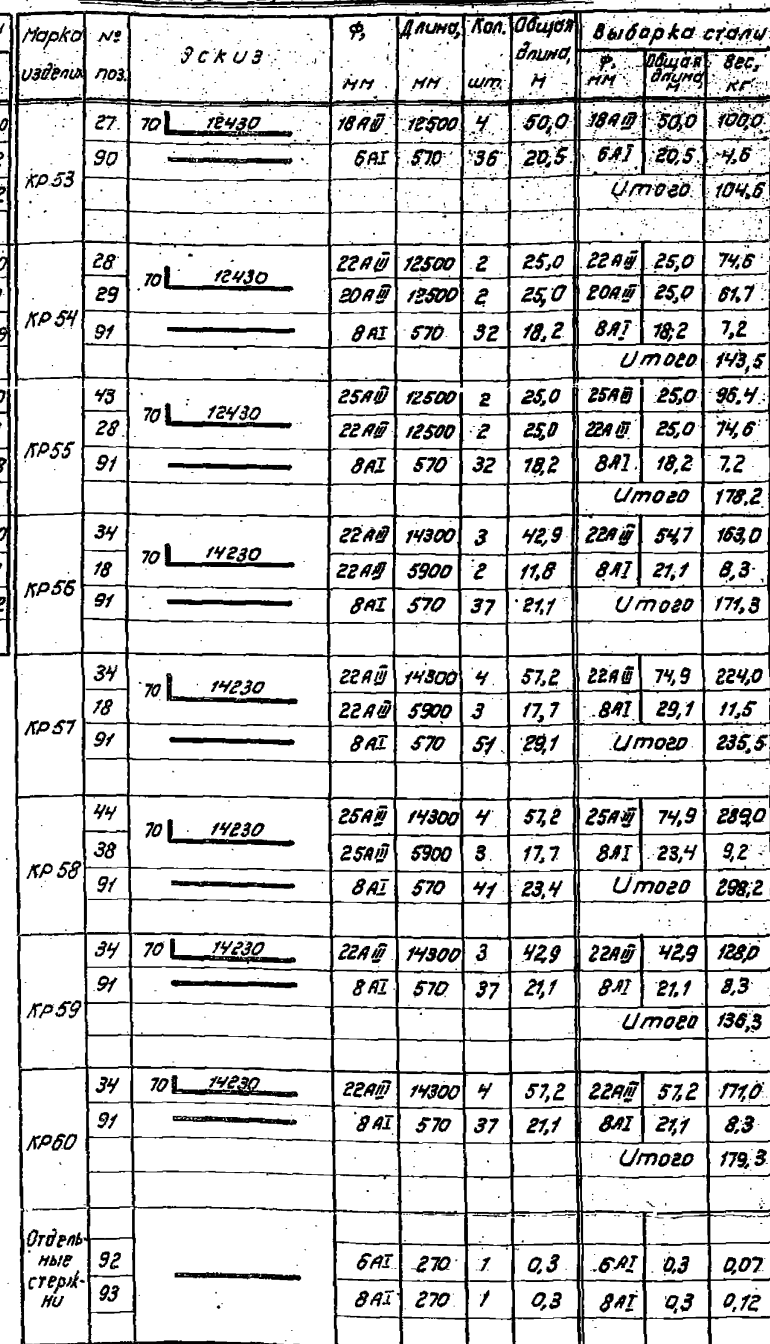 Марка изделия | № поз. | Эскиз | Ф, мм | Длина, мм | Кол. шт. | Общая длина, м | Выборка стали
Ф, мм | Общая длина м | Вес, кг
КР 53
27 | 70 12430 | 18АIII | 12500 | 4 | 50,0 | 18АIII | 50,0 | 100,0
90 | 6АI | 570 | 36 | 20,5 | 6АI | 20,5 | 4,6
Итого 104,6
КР 54
28 | 70 12430 | 22АIII | 12500 | 2 | 25,0 | 22АIII | 25,0 | 74,6
29 | 20АIII | 12500 | 2 | 25,0 | 20АIII | 25,0 | 61,7
91 | 8АI | 570 | 32 | 18,2 | 8АI | 18,2 | 7,2
Итого 143,5
КР55
43 | 70 12430 | 25АIII | 12500 | 2 | 25,0 | 25АIII | 25,0 | 96,4
28 | 22АIII | 12500 | 2 | 25,0 | 22АIII | 25,0 | 74,6
91 | 8АI | 570 | 32 | 18,2 | 8АI | 18,2 | 7,2
Итого 178,2
КР56
34 | 70 14230 | 22АIII | 14300 | 3 | 42,9 | 22АIII | 54,7 | 163,0
18 | 22АIII | 5900 | 2 | 11,8 | 8АI | 21,1 | 8,3
91 | 8АI | 570 | 37 | 21,1 | Итого 171,3
КР57
34 | 70 14230 | 22АIII | 14300 | 4 | 57,2 | 22АIII | 74,9 | 224,0
18 | 22АIII | 5900 | 3 | 17,7 | 8АI | 29,1 | 11,5
91 | 8АI | 570 | 51 | 29,1 | Итого 235,5
КР 58
44 | 70 14230 | 25АIII | 14300 | 4 | 57,2 | 25АIII | 74,9 | 289,0
38 | 25АIII | 5900 | 3 | 17,7 | 8АI | 23,4 | 9,2
91 | 8АI | 570 | 41 | 23,4 | Итого 298,2
КР59
34 | 70 14230 | 22АIII | 14300 | 3 | 42,9 | 22АIII | 42,9 | 128,0
91 | 8АI | 570 | 37 | 21,1 | 8АI | 21,1 | 8,3
Итого 136,3
КР60
34 | 70 14230 | 22АIII | 14300 | 4 | 57,2 | 22АIII | 57,2 | 171,0
91 | 8АI | 570 | 37 | 21,1 | 8АI | 21,1 | 8,3
Итого 179,3
Отдельные стержни
92 | 6АI | 270 | 1 | 0,3 | 6АI | 0,3 | 0,07
93 | 8АI | 270 | 1 | 0,3 | 8АI | 0,3 | 0,12